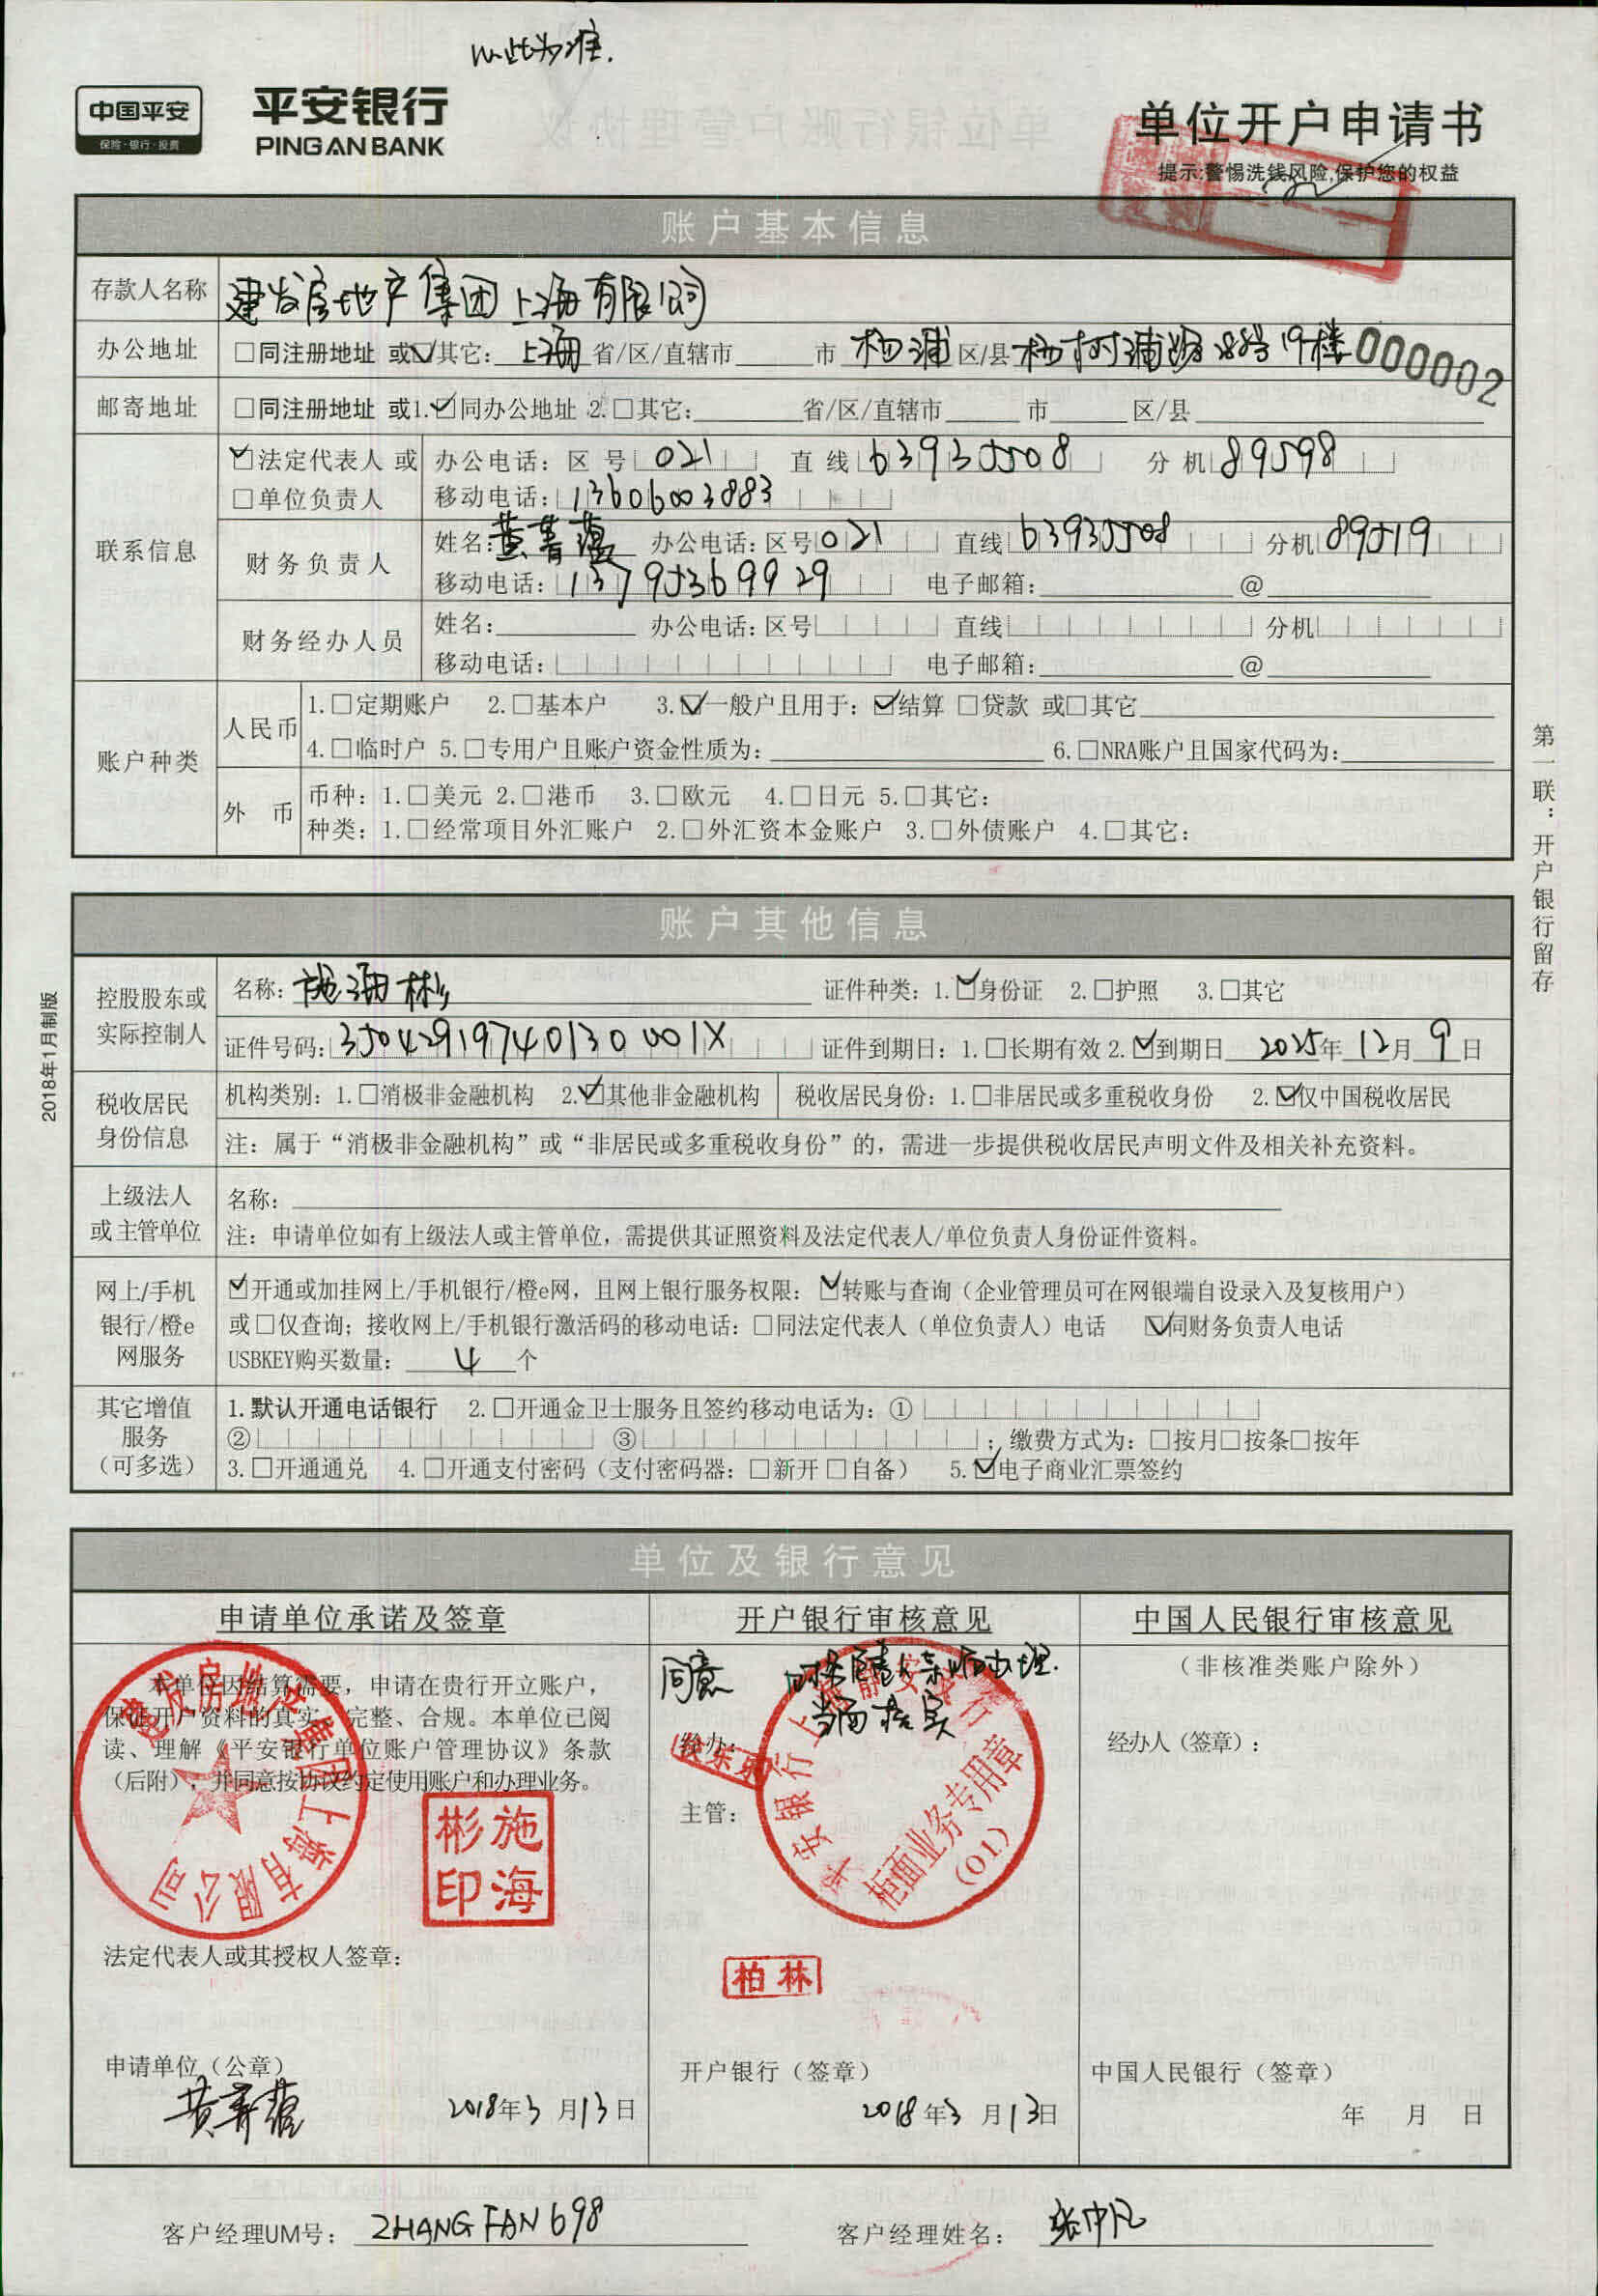 以此为准.
中国平安
保险·银行·投资
平安银行
PINGAN BANK
单位开户申请书
提示:警惕洗钱风险,保护您的权益
账户基本信息
存款人名称 建发房地产集团上海有限公司
办公地址 □同注册地址 或☑其它: 上海 省/区/直辖市 市 杨浦 区/县 杨树浦路288号19楼
000002
邮寄地址 □同注册地址 或1.☑同办公地址 2.□其它: 省/区/直辖市 市 区/县
联系信息
☑法定代表人 或 □单位负责人
办公电话: 区号 021 直线 63935508 分机 89598
移动电话: 13606003883
财务负责人
姓名: 黄菁蕴 办公电话: 区号 021 直线 63935508 分机 89519
移动电话: 13795369929 电子邮箱: @
财务经办人员
姓名: 办公电话: 区号 直线 分机
移动电话: 电子邮箱: @
账户种类
人民币
1.□定期账户 2.□基本户 3.☑一般户且用于: ☑结算 □贷款 或□其它
4.□临时户 5.□专用户且账户资金性质为: 6.□NRA账户且国家代码为:
外币
币种: 1.□美元 2.□港币 3.□欧元 4.□日元 5.□其它:
种类: 1.□经常项目外汇账户 2.□外汇资本金账户 3.□外债账户 4.□其它:
第一联:开户银行留存
2018年1月制版
账户其他信息
控股股东或实际控制人
名称: 施海彬 证件种类: 1.☑身份证 2.□护照 3.□其它
证件号码: 35042919740130001X 证件到期日: 1.□长期有效 2.☑到期日 2025年12月9日
税收居民身份信息
机构类别: 1.□消极非金融机构 2.☑其他非金融机构 税收居民身份: 1.□非居民或多重税收身份 2.☑仅中国税收居民
注: 属于“消极非金融机构”或“非居民或多重税收身份”的, 需进一步提供税收居民声明文件及相关补充资料。
上级法人或主管单位
名称:
注: 申请单位如有上级法人或主管单位, 需提供其证照资料及法定代表人/单位负责人身份证件资料。
网上/手机银行/橙e网服务
☑开通或加挂网上/手机银行/橙e网, 且网上银行服务权限: ☑转账与查询(企业管理员可在网银端自设录入及复核用户)
或□仅查询; 接收网上/手机银行激活码的移动电话: □同法定代表人(单位负责人)电话 ☑同财务负责人电话
USBKEY购买数量: 4 个
其它增值服务(可多选)
1.默认开通电话银行 2.□开通金卫士服务且签约移动电话为: ①
② ③ ; 缴费方式为: □按月□按条□按年
3.□开通通兑 4.□开通支付密码(支付密码器: □新开 □自备) 5.☑电子商业汇票签约
单位及银行意见
申请单位承诺及签章
开户银行审核意见
中国人民银行审核意见
本单位因结算需要, 申请在贵行开立账户,
保证开户资料的真实、完整、合规。本单位已阅
读、理解《平安银行单位账户管理协议》条款
(后附), 并同意按协议约定使用账户和办理业务。
建发房地产集团上海有限公司
施海彬印
法定代表人或其授权人签章:
申请单位(公章)
黄菁蕴
2018年3月13日
同意
当面核实
经办:
主管:
平安银行上海静安支行
柜面业务专用章
(01)
柏林
开户银行(签章)
2018年3月13日
(非核准类账户除外)
经办人(签章):
中国人民银行(签章)
年 月 日
客户经理UM号: ZHANGFAN698
客户经理姓名: